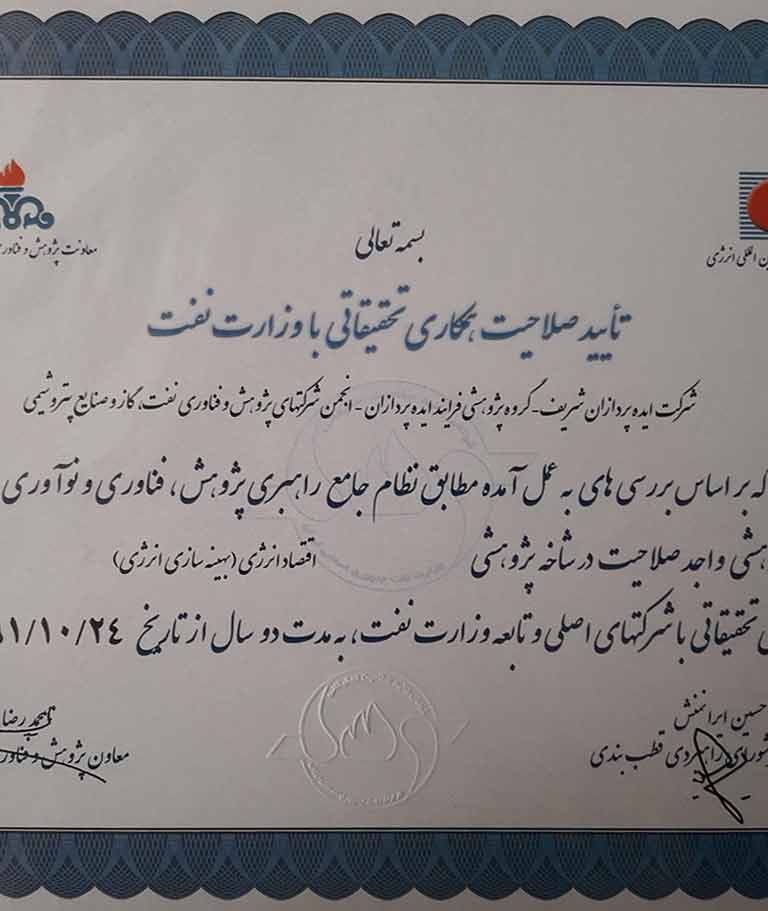 بسمه تعالی
معاونت پژوهش و فناوری
المللی انرژی
تأیید صلاحیت همکاری تحقیقاتی با وزارت نفت
شرکت ایده پردازان شریف - گروه پژوهشی فرایند ایده پردازان - انجمن شرکتهای پژوهش و فناوری نفت، گاز و صنایع پتروشیمی
که بر اساس بررسی های به عمل آمده مطابق نظام جامع راهبری پژوهش، فناوری و نوآوری
واجد صلاحیت در شاخه پژوهشی اقتصاد انرژی (بهینه سازی انرژی)
تحقیقاتی با شرکتهای اصلی و تابعه وزارت نفت، به مدت دو سال از تاریخ ۱/۱۰/۲۴
حسین ایرانمنش
راهبردی قطب بندی
محمدرضا
معاون پژوهش و فناوری